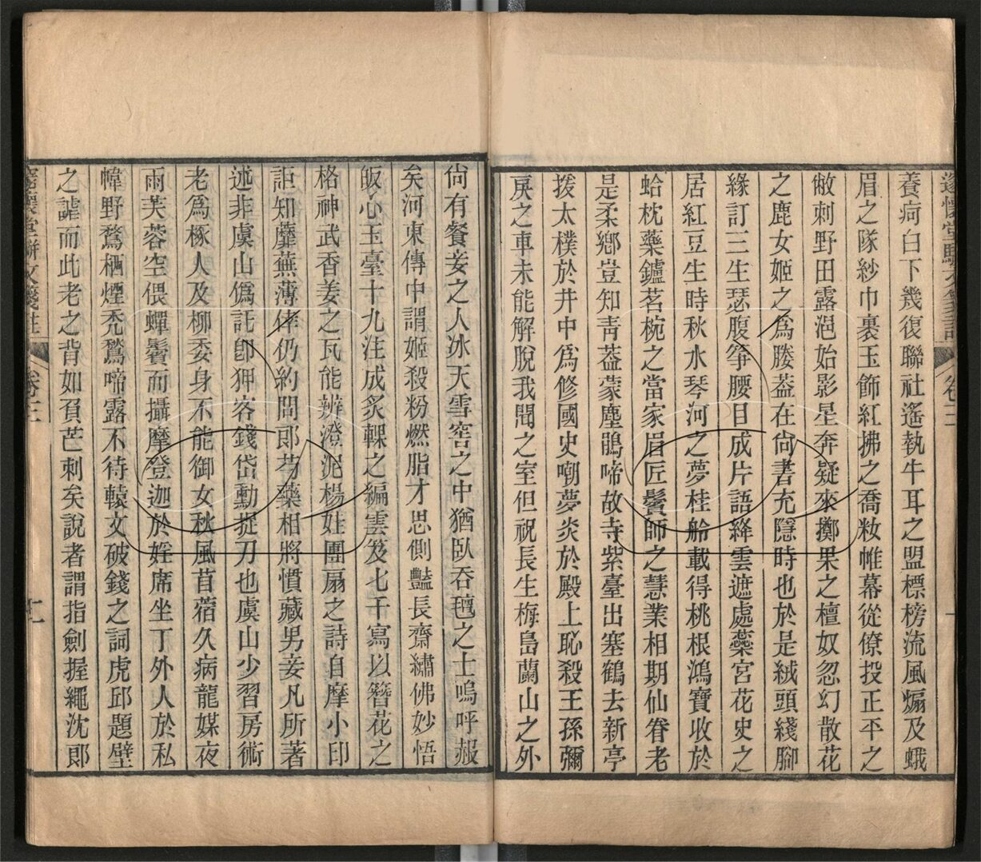 養疴白下幾復聯社遙執牛耳之盟標榜流風煽及蛾
眉之隊紗巾裹玉飾紅拂之喬妝帷幕從僚投正平之
敝刺野田露浥始影星奔疑來擲果之檀奴忽幻散花
之鹿女姬之為媵蓋在尙書充隱時也於是絨頭綫腳
緣訂三生瑟腹箏腰目成片語絳雲遮處蘂宮花史之
居紅豆生時秋水琴河之夢桂船載得桃根鴻寶收於
蛤枕藥鑪茗椀之當家眉匠鬢師之慧業相期仙眷老
是柔鄉豈知青蓋蒙塵鵑啼故寺紫臺出塞鶴去新亭
拨太樸於井中為修國史嘲夢炎於殿上恥殺王孫彌
戾之車未能解脫我聞之室但祝長生梅島蘭山之外
尙有餐妾之人冰天雪窖之中猶臥吞氊之士嗚呼赧
矣河東傳中謂姬殺粉燃脂才思側豔長齋繡佛妙悟
皈心玉臺十九注成炙輠之編雲笈七千寫以簪花之
格神武香姜之瓦能辨澄泥楊姓團扇之詩自摩小印
詎知蘼蕪薄倖仍約間郎芍藥相將慣藏男妾凡所著
述非虞山僞託卽狎客錢岱勳捉刀也虞山少習房術
老為椓人及柳委身不能御女秋風苜蓿久病龍媒夜
雨芙蓉空偎蟬鬢而攝摩登迦於婬席坐丁外人於私
幃野鶩栖煙禿鶖啼露不待轅文破錢之詞虎邱題壁
之謔而此老之背如負芒刺矣說者謂指劍握繩沈郎
卷三